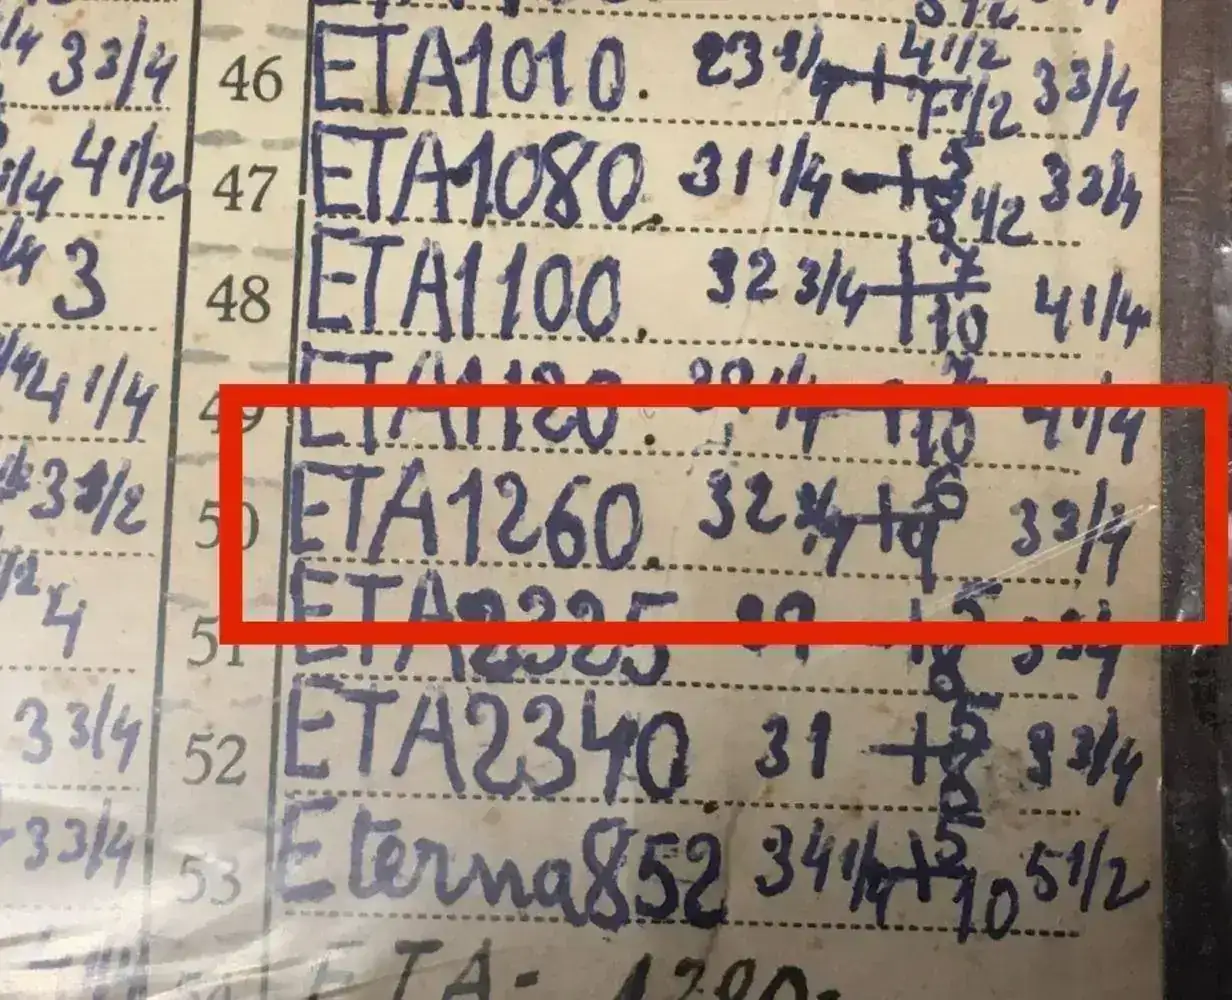 33/4
46 ETA1010. 23 3/4 + 4 1/2 / 5 1/2 3 3/4
4 1/2
47 ETA1080. 31 1/4 + 5 / 8 1/2 3 3/4
3
48 ETA1100. 32 3/4 + 7 / 10 4 1/4
4 1/4
49 ETA1120. 1/4 + 7 / 10 4 1/4
3 1/2
50 ETA1260. 32 3/4 + 6 / 9 3 3/4
4
51 ETA2325 + 5 / 8 3 3/4
3 3/4
52 ETA2340 31 + 5 / 8 3 3/4
3 3/4
53 Eterna852 34 1/4 + 5 / 10 5 1/2
ETA-